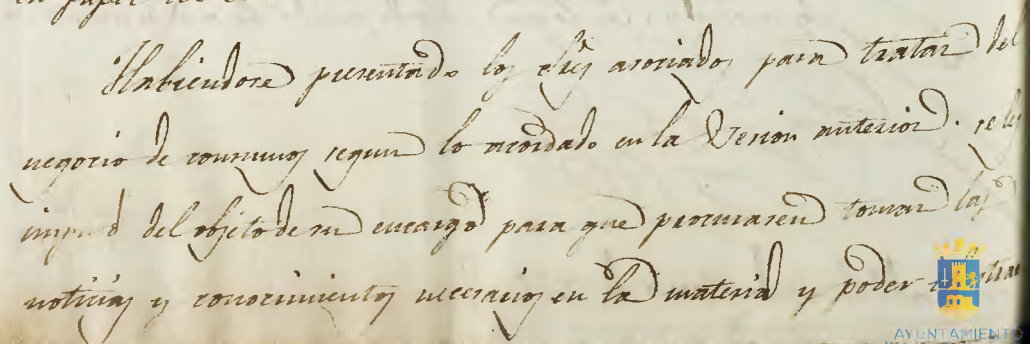 en papel de
Habiendose presentado los dies asociados para tratar del
negocio de consumos segun lo acordado en la Sesion anterior. se les
impuso del objeto de su encargo para que procurasen tomar las
noticias y conocimientos necesarios en la materia y poder
AYUNTAMIENTO